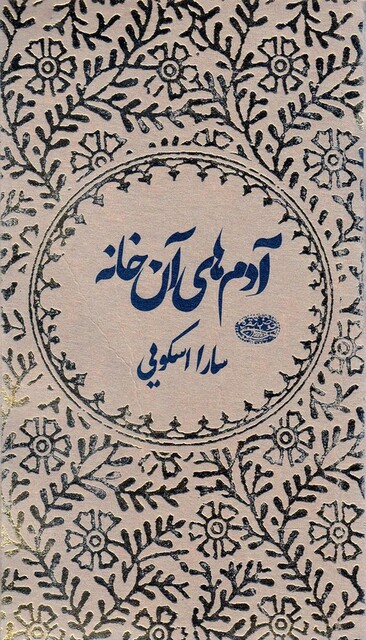 آدم‌های آن خانه
سارا اسکویی